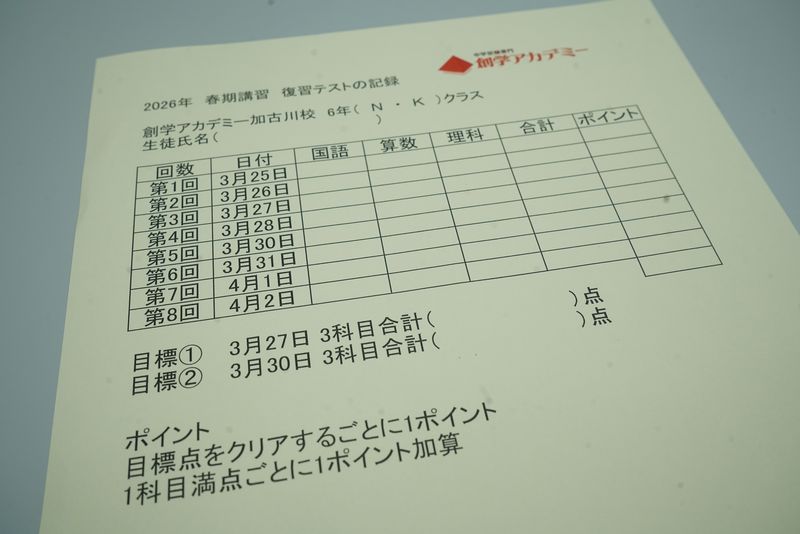 中学受験専門
創学アカデミー
2026年 春期講習 復習テストの記録
創学アカデミー加古川校 6年( N ・ K )クラス
生徒氏名( )
回数 日付 国語 算数 理科 合計 ポイント
第1回 3月25日
第2回 3月26日
第3回 3月27日
第4回 3月28日
第5回 3月30日
第6回 3月31日
第7回 4月1日
第8回 4月2日
目標① 3月27日 3科目合計( )点
目標② 3月30日 3科目合計( )点
ポイント
目標点をクリアするごとに1ポイント
1科目満点ごとに1ポイント加算